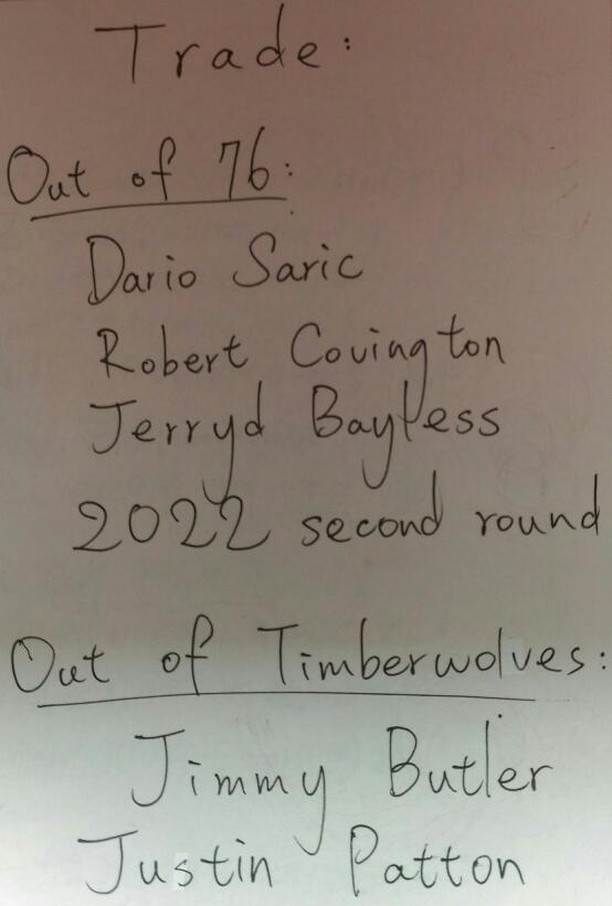 Trade:
Out of 76:
Dario Saric
Robert Covington
Jerryd Bayless
2022 second round
Out of Timberwolves:
Jimmy Butler
Justin Patton